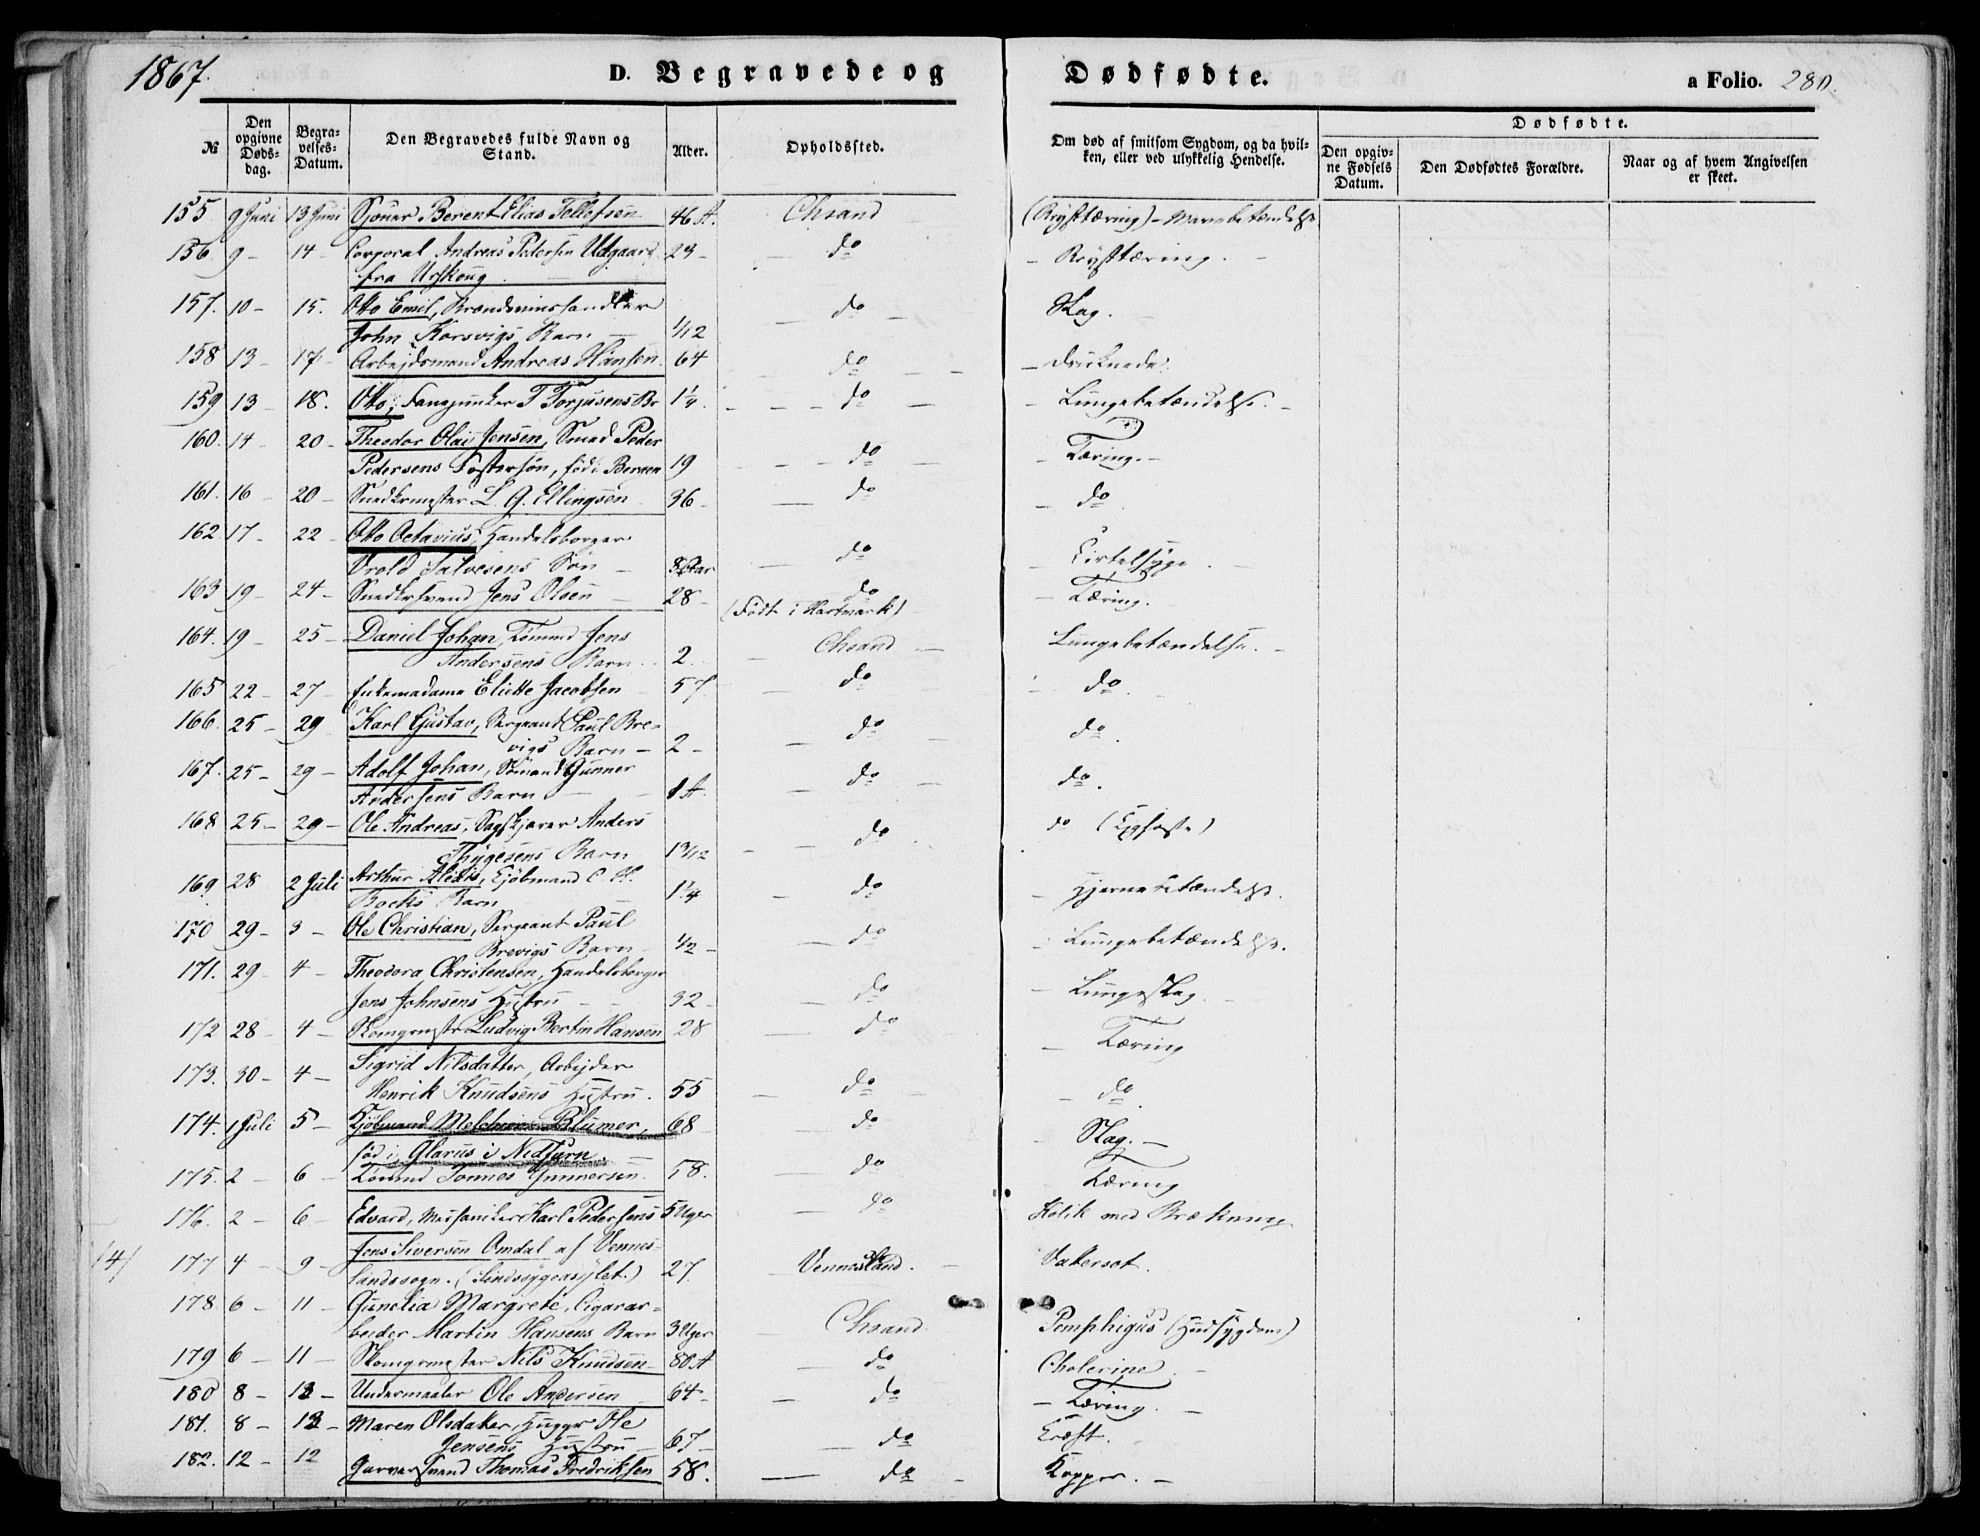 1867.
D. Begravede og Dødfødte.
a Folio. 280.
№
Den opgivne Døds-dag.
Begra-velses-Datum.
Den Begravedes fulde Navn og Stand.
Alder.
Opholdssted.
Om død af smitsom Sygdom, og da hvil-ken, eller ved ulykkelig Hendelse.
Dødfødte.
Den opgiv-ne Fødsels Datum.
Den Dødfødtes Forældre.
Naar og af hvem Angivelsen er skeet.
155. 9 Juni 13 Juni Sjouer Berent Elias Tellefsen 46 A. Chsand (Brysttæring) - Mavebetændelse
156. 9 - 14 - Corporal Andreas Pedersen Udgaard 23 - do - Brysttæring. -
fra Urskoug.
157. 10 - 15. Otto Emil, Brændeviinshandler do Slag.
John Korsvigs Barn 1/12
158 13 - 17 - Arbejdsmand Andreas Hansen. 64 do - druknede.
159 13 - 18. Otto, Fanejunker T Torjusens Br 1¼. do - Lungebetændelse. -
160. 14 - 20 - Theodor Olai Jensen, Smed Peder
Pedersens Fostersøn, fød i Bergen 19 do - Tæring. -
161. 16 - 20 - Snedkermester L. G. Ellingsen 36 - do - do
162. 17 - 22 - Otto Octavius, Handelsborger
Salvesens Søn do - Kirtelsyge.
163 19 - 24 - Snedkersvend Jens Olsen 28 - do - Tæring.
(Født i Hartmark)
164. 19 - 25 - Daniel Johan, Tømmd Jens Chsand Lungebetændelse. -
Andersens Barn 2.
165 22 - 27 - Enkemadame Elutte Jacobsen 57 do do.
166. 25 - 29 Karl Gustav, Sergeant Paul Bre- do do.
vigs Barn - 2 -
167. 25 - 29 - Adolf Johan, Sømand Gunner do do.
Andersens Barn 1 A.
168 25 - 29 - Ole Andreas, Sagskjærer Anders do do
Thygesens Barn
169. 28 2 Juli Arthur Alexis, Kjøbmand C
Bocks Barn 1¼ do - Hjernebetændelse.
170 29 - 3 - Ole Christian, Sergeant Paul
Brevigs Barn ½ - do - Lungebetændelse.
171. 29 - 4 - Theodora Christensen, Handelsborger
Jens Johnsens Hustru 32 - do - Lungeslag.
172 28 - 4 - Skomgrmstr Ludvig Bertin Hansen 28 do - Tæring
173. 30 - 4 - Sigrid Nilsdatter, Arbejder
Henrik Knudsens Hustru. 55 do - do.
174. 1 Juli 5 - Kjøbmand Melchior Blumer, 68 do Slag. -
fød i Glarus i
175. 2 - 6 - Tømmd Tønnes Gunnersen 58. do Tæring
176. 2 - 6 - Edvard, Karl Pedersens 5 Uger do Kolik med Brækning
(4) 177 4 - 9 - Jens Siversen Omdal af Vennes-
landssogn. (Sindssygeasylet.) 27. Vennesland. - Vatersot.
178. 6 - 11 - Margrete, Cigarar-
beider Martin Hansens Barn 3 Uger Chsand Pemphigus (Hudsygdom)
179 6 - 11 - Skomgrmester Nils Knudsen 80 A do Cholerine -
180 8 - 13 - Undermaaler Ole Andersen 64 - do - Tæring.
181. 8 - 13 - Maren Olsdatter, Ole
Jensens Hustru 67 - do Kræft.
182. 12 - 12 Garversvend Thomas Fredriksen 58. do - Kopper. -